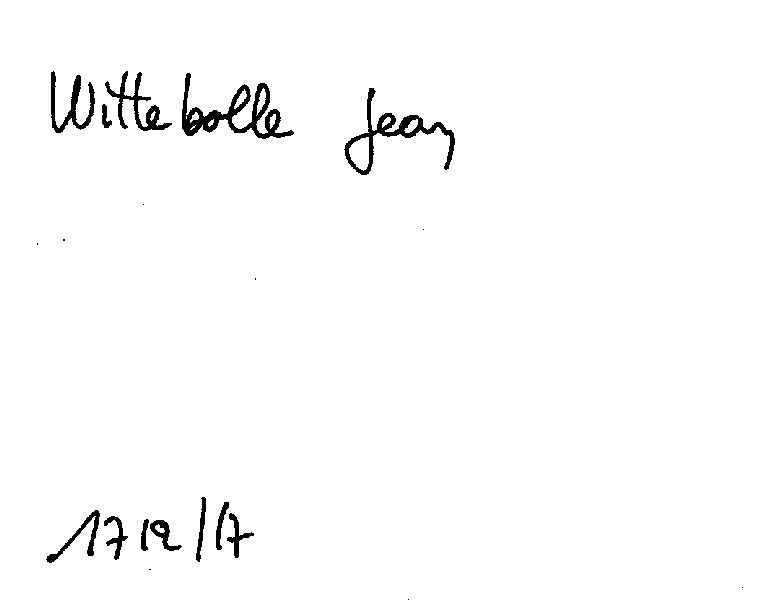 Wittebolle Jean
1712/17